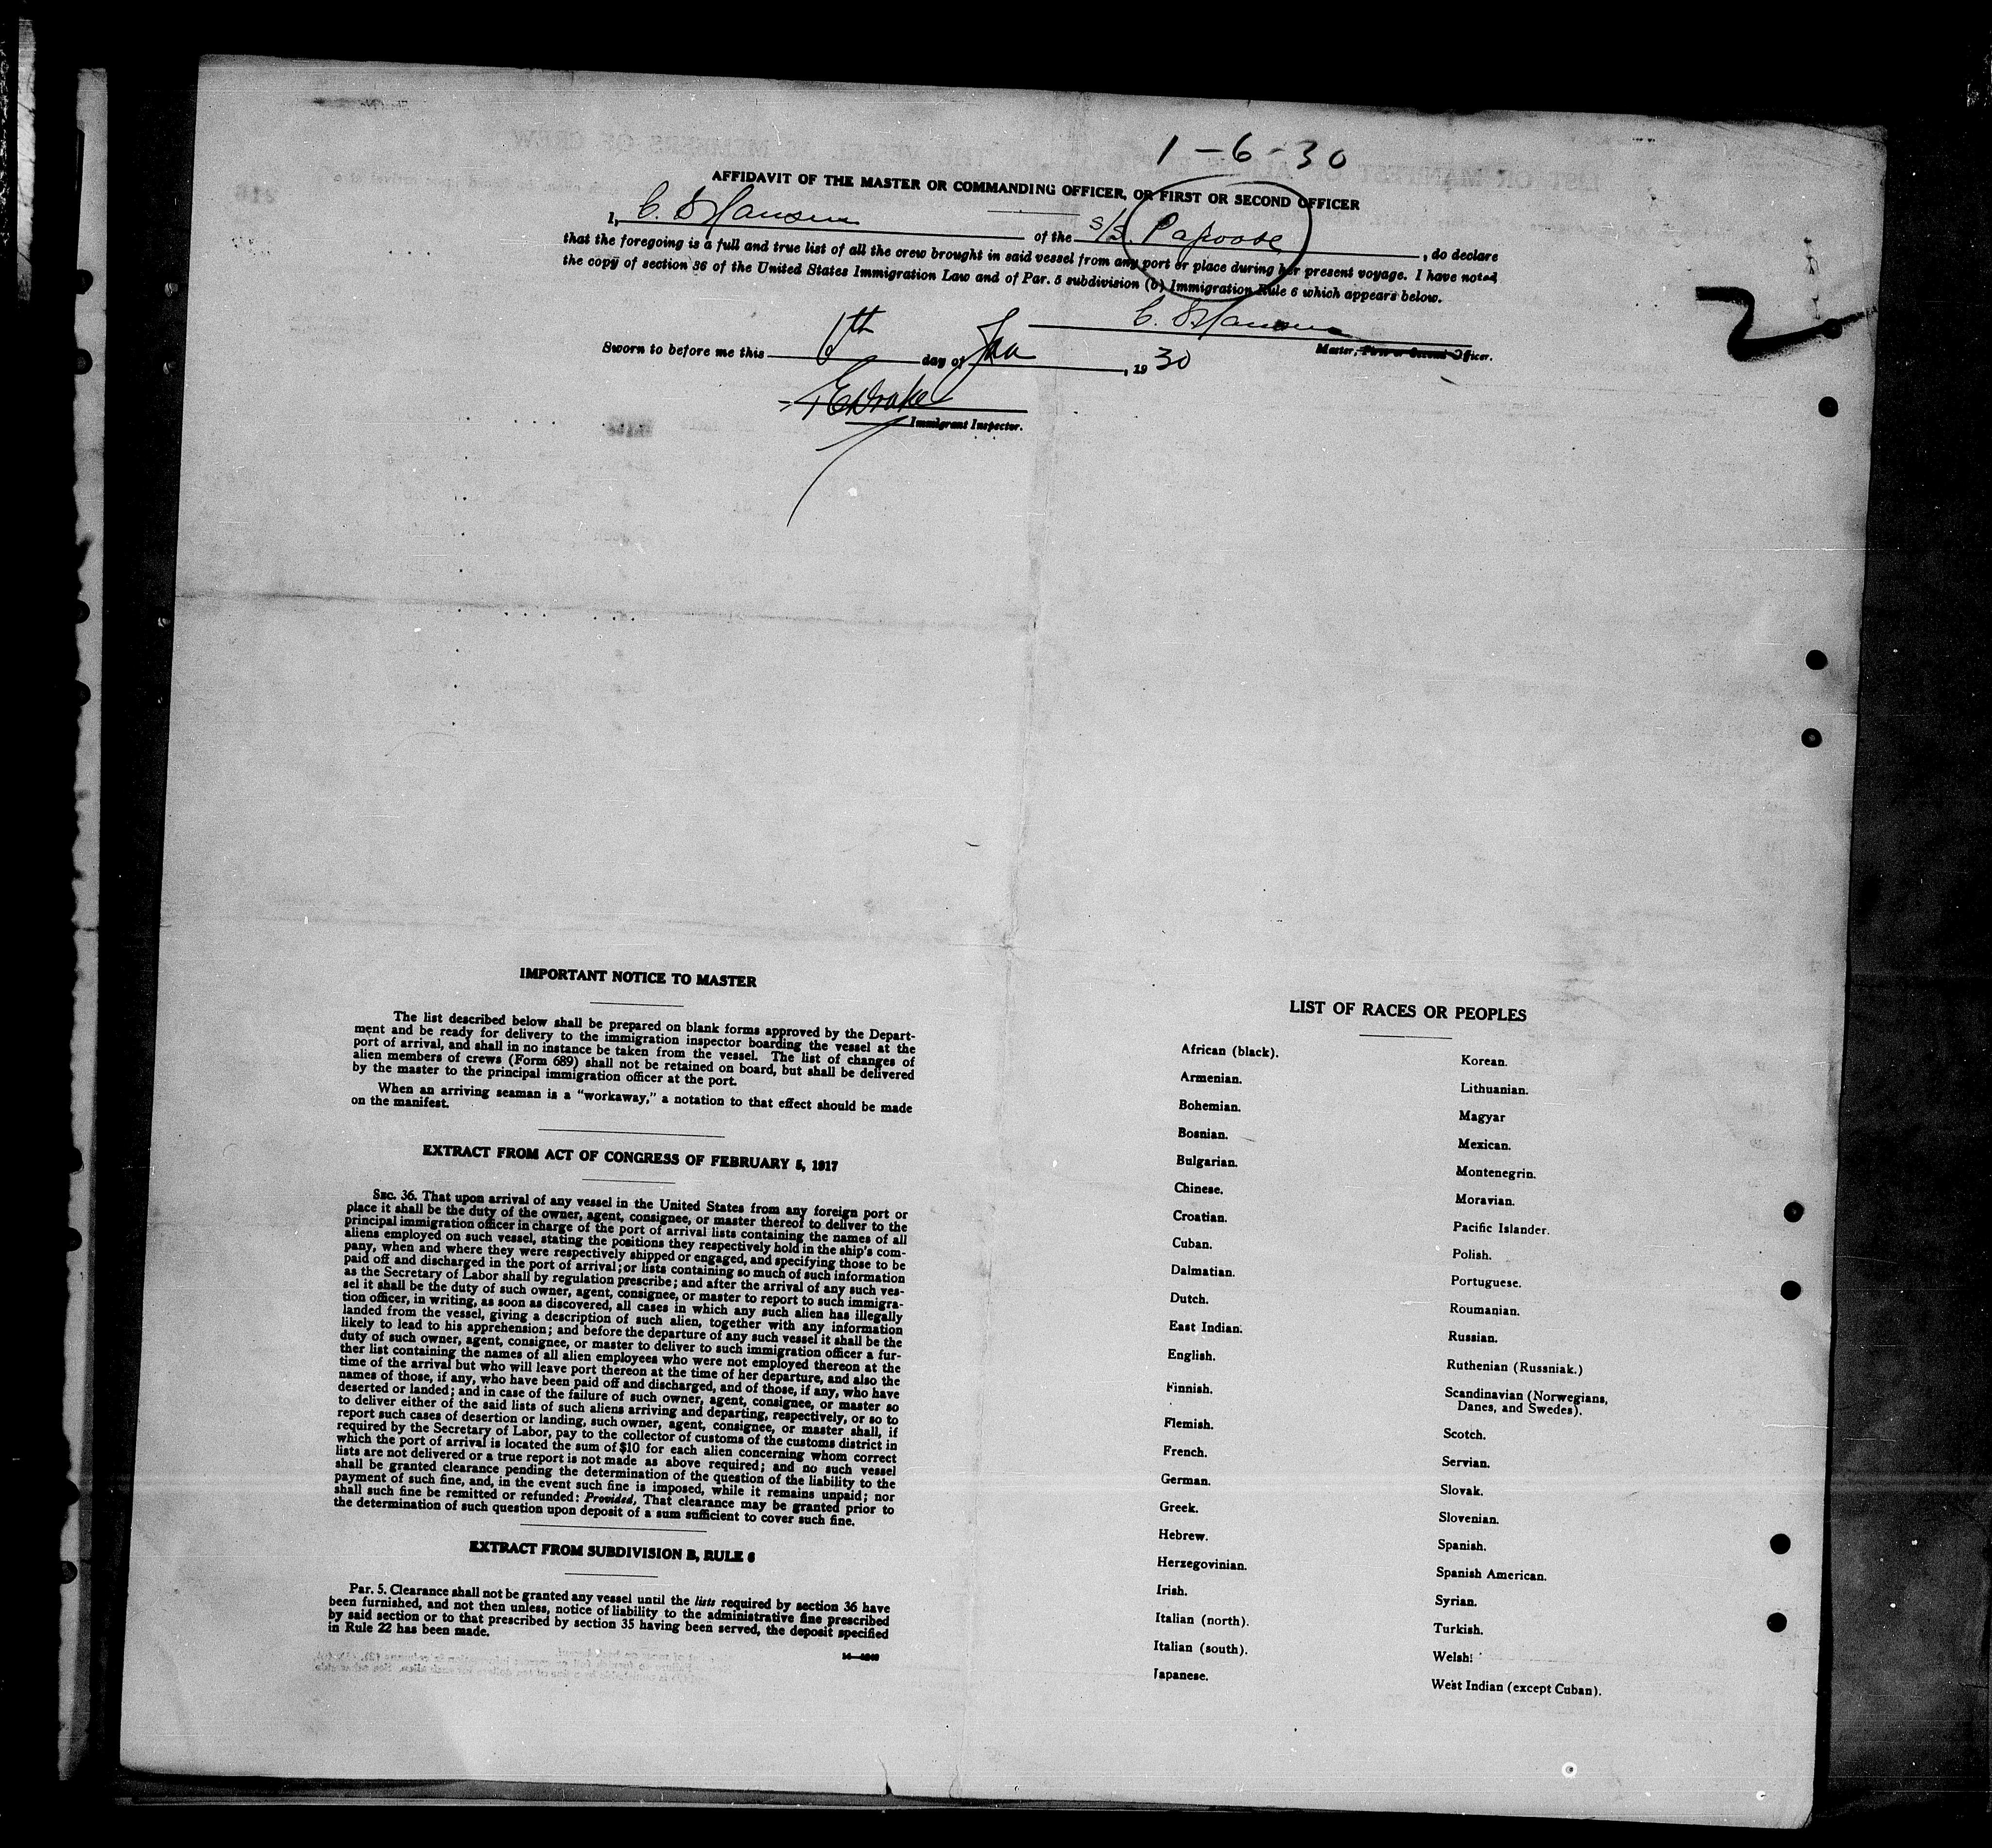 1-6-30
AFFIDAVIT OF THE MASTER OR COMMANDING OFFICER, OR FIRST OR SECOND OFFICER
I, C. S Hansen of the S/S. Papoose, do declare
that the foregoing is a full and true list of all the crew brought in said vessel from any port or place during her present voyage. I have noted
the copy of section 36 of the United States Immigration Law and of Par. 5 subdivision (b) Immigration Rule 6 which appears below.
C. S Hansen
Master, First or Second Officer.
Sworn to before me this 6th day of Jan, 1930
Drake
Immigrant Inspector.
2
IMPORTANT NOTICE TO MASTER
The list described below shall be prepared on blank forms approved by the Depart-
ment and be ready for delivery to the immigration inspector boarding the vessel at the
port of arrival, and shall in no instance be taken from the vessel. The list of changes of
alien members of crews (Form 689) shall not be retained on board, but shall be delivered
by the master to the principal immigration officer at the port.
When an arriving seaman is a "workaway," a notation to that effect should be made
on the manifest.
EXTRACT FROM ACT OF CONGRESS OF FEBRUARY 5, 1917
SEC. 36. That upon arrival of any vessel in the United States from any foreign port or
place it shall be the duty of the owner, agent, consignee, or master thereof to deliver to the
principal immigration officer in charge of the port of arrival lists containing the names of all
aliens employed on such vessel, stating the positions they respectively hold in the ship's com-
pany, when and where they were respectively shipped or engaged, and specifying those to be
paid off and discharged in the port of arrival; or lists containing so much of such information
as the Secretary of Labor shall by regulation prescribe; and after the arrival of any such ves-
sel it shall be the duty of such owner, agent, consignee, or master to report to such immigra-
tion officer, in writing, as soon as discovered, all cases in which any such alien has illegally
landed from the vessel, giving a description of such alien, together with any information
likely to lead to his apprehension; and before the departure of any such vessel it shall be the
duty of such owner, agent, consignee, or master to deliver to such immigration officer a fur-
ther list containing the names of all alien employees who were not employed thereon at the
time of the arrival but who will leave port thereon at the time of her departure, and also the
names of those, if any, who have been paid off and discharged, and of those, if any, who have
deserted or landed; and in case of the failure of such owner, agent, consignee, or master so
to deliver either of the said lists of such aliens arriving and departing, respectively, or so to
report such cases of desertion or landing, such owner, agent, consignee, or master shall, if
required by the Secretary of Labor, pay to the collector of customs of the customs district in
which the port of arrival is located the sum of $10 for each alien concerning whom correct
lists are not delivered or a true report is not made as above required; and no such vessel
shall be granted clearance pending the determination of the question of the liability to the
payment of such fine, and, in the event such fine is imposed, while it remains unpaid; nor
shall such fine be remitted or refunded: Provided, That clearance may be granted prior to
the determination of such question upon deposit of a sum sufficient to cover such fine.
EXTRACT FROM SUBDIVISION B, RULE 6
Par. 5. Clearance shall not be granted any vessel until the lists required by section 36 have
been furnished, and not then unless, notice of liability to the administrative fine prescribed
by said section or to that prescribed by section 35 having been served, the deposit specified
in Rule 22 has been made.
LIST OF RACES OR PEOPLES
African (black).
Armenian.
Bohemian.
Bosnian.
Bulgarian.
Chinese.
Croatian.
Cuban.
Dalmatian.
Dutch.
East Indian.
English.
Finnish.
Flemish.
French.
German.
Greek.
Hebrew.
Herzegovinian.
Irish.
Italian (north).
Italian (south).
Japanese.
Korean.
Lithuanian.
Magyar
Mexican.
Montenegrin.
Moravian.
Pacific Islander.
Polish.
Portuguese.
Roumanian.
Russian.
Ruthenian (Russniak.)
Scandinavian (Norwegians,
Danes, and Swedes).
Scotch.
Servian.
Slovak.
Slovenian.
Spanish.
Spanish American.
Syrian.
Turkish.
Welsh.
West Indian (except Cuban).